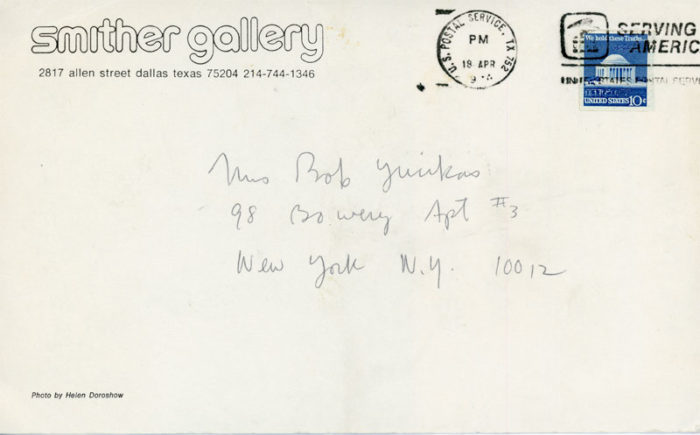 smither gallery
2817 allen street dallas texas 75204 214-744-1346
U.S. POSTAL SERVICE, TX 752
PM
18 APR
SERVING
AMERIC
UNITED STATES POSTAL SERVI
We hold these Truths...
UNITED STATES 10c
Bob
98 Bowery Apt #3
New York N.Y. 10012
Photo by Helen Doroshow